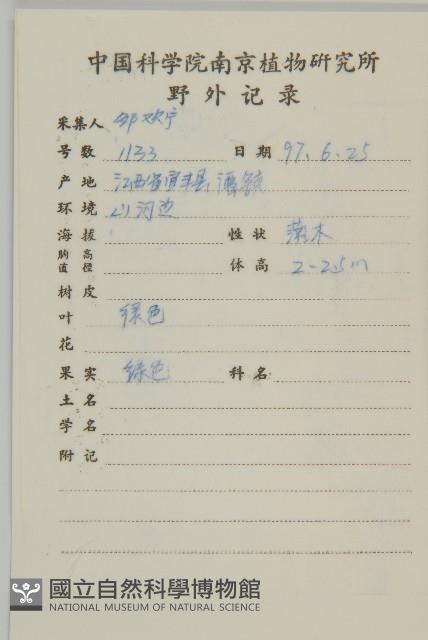 中国科学院南京植物研究所
野外记录
采集人 邹欢宁
号数 1133 日期 97.6.25
产地 江西省宜丰县 潭镇
环境 山 河边
海拔 性状 灌木
胸高直径 体高 2-2.5m
树皮
叶 绿色
花
果实 绿色 科名
土名
学名
附记
國立自然科學博物館
NATIONAL MUSEUM OF NATURAL SCIENCE